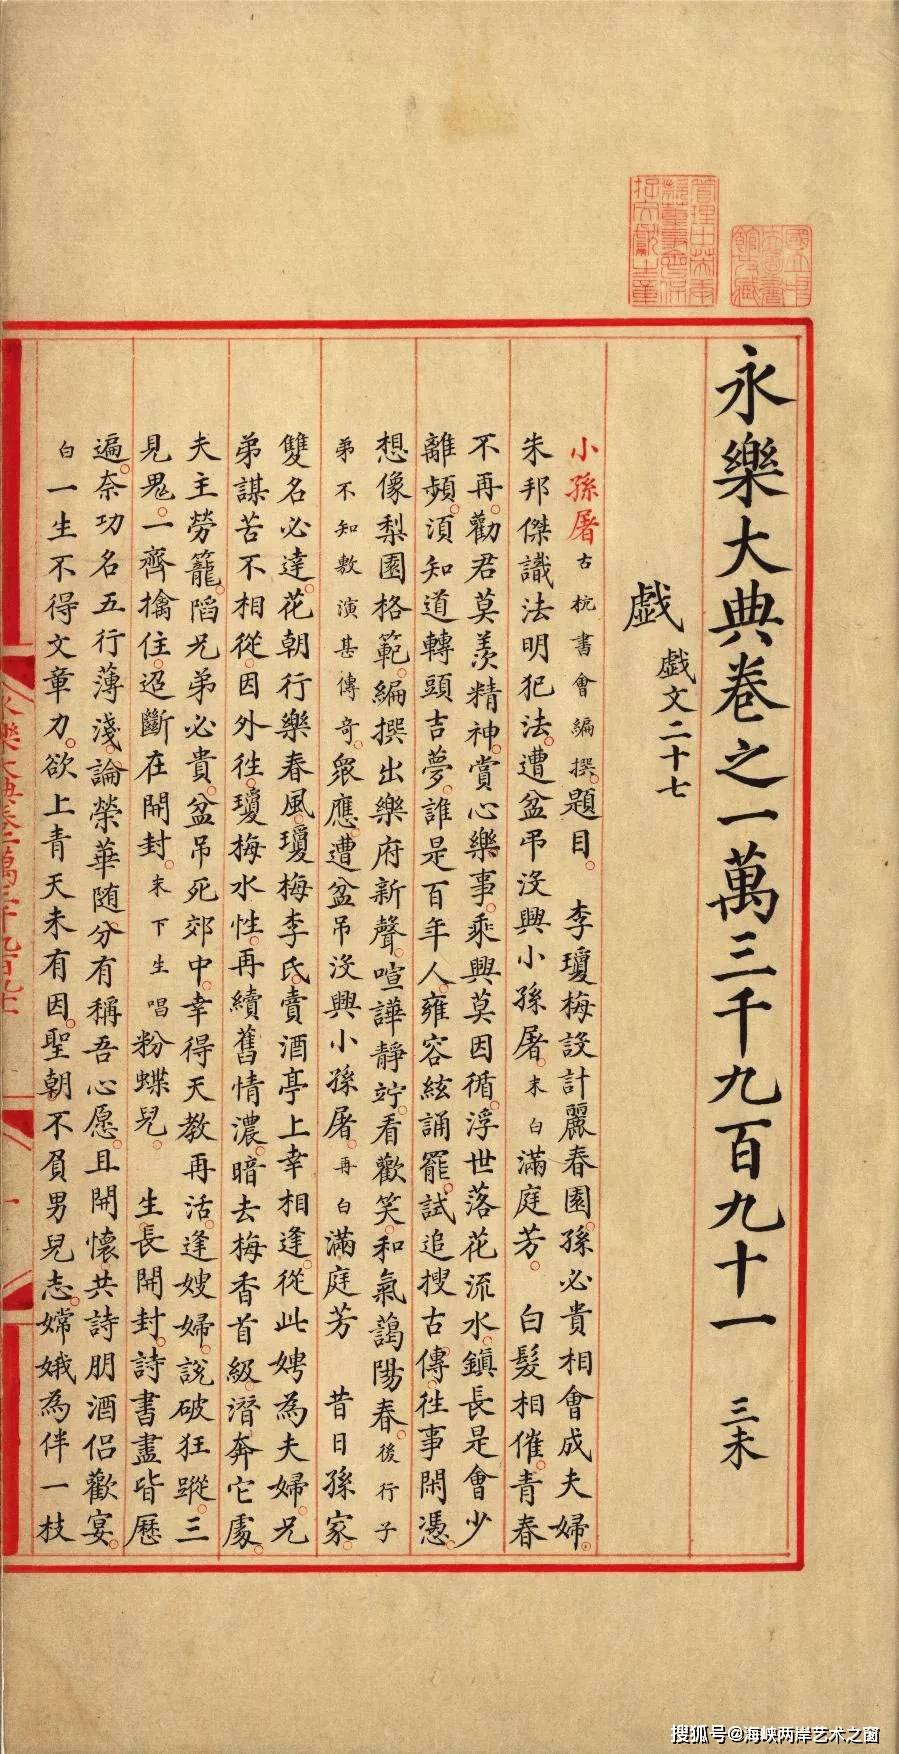 永樂大典卷之一萬三千九百九十一 三未
戯 戯文二十七
小孫屠古杭書會編撰。題目。 李瓊梅設計麗春園。孫必貴相會成夫婦。
朱邦傑識法明犯法。遭盆弔沒興小孫屠。末白滿庭芳。 白髮相催。青春
不再。勸君莫羨精神。賞心樂事。乘興莫因循。浮世落花流水。鎮長是會少
離頻。須知道轉頭吉夢。誰是百年人。雍容絃誦罷。試追搜古傳。往事閑憑。
想像梨園格範。編撰出樂府新聲。喧譁靜竚。看歡笑。和氣藹陽春。後行子
弟不知敷演甚傳奇。衆應。遭盆吊沒興小孫屠。再白滿庭芳 昔日孫家。
雙名必達。花朝行樂春風。瓊梅李氏。賣酒亭上幸相逢。從此娉為夫婦。兄
弟謀苦不相從。因外徃。瓊梅水性。再續舊情濃。暗去梅香首級。潛奔它處。
夫主勞籠。陷兄弟必貴。盆吊死郊中。幸得天教再活。逢嫂婦。說破狂蹤。三
見鬼。一齊擒住。迢斷在開封。末下生唱粉蝶兒。 生長開封。詩書盡皆歷
遍。奈功名五行薄淺。論榮華随分有。稱吾心愿。且開懷共詩朋酒侣歡宴。
白一生不得文章力。欲上青天未有因。聖朝。不負男兒志。嫦娥為伴一枝
國立中央圖書館收藏
搜狐号@海峡两岸艺术之窗